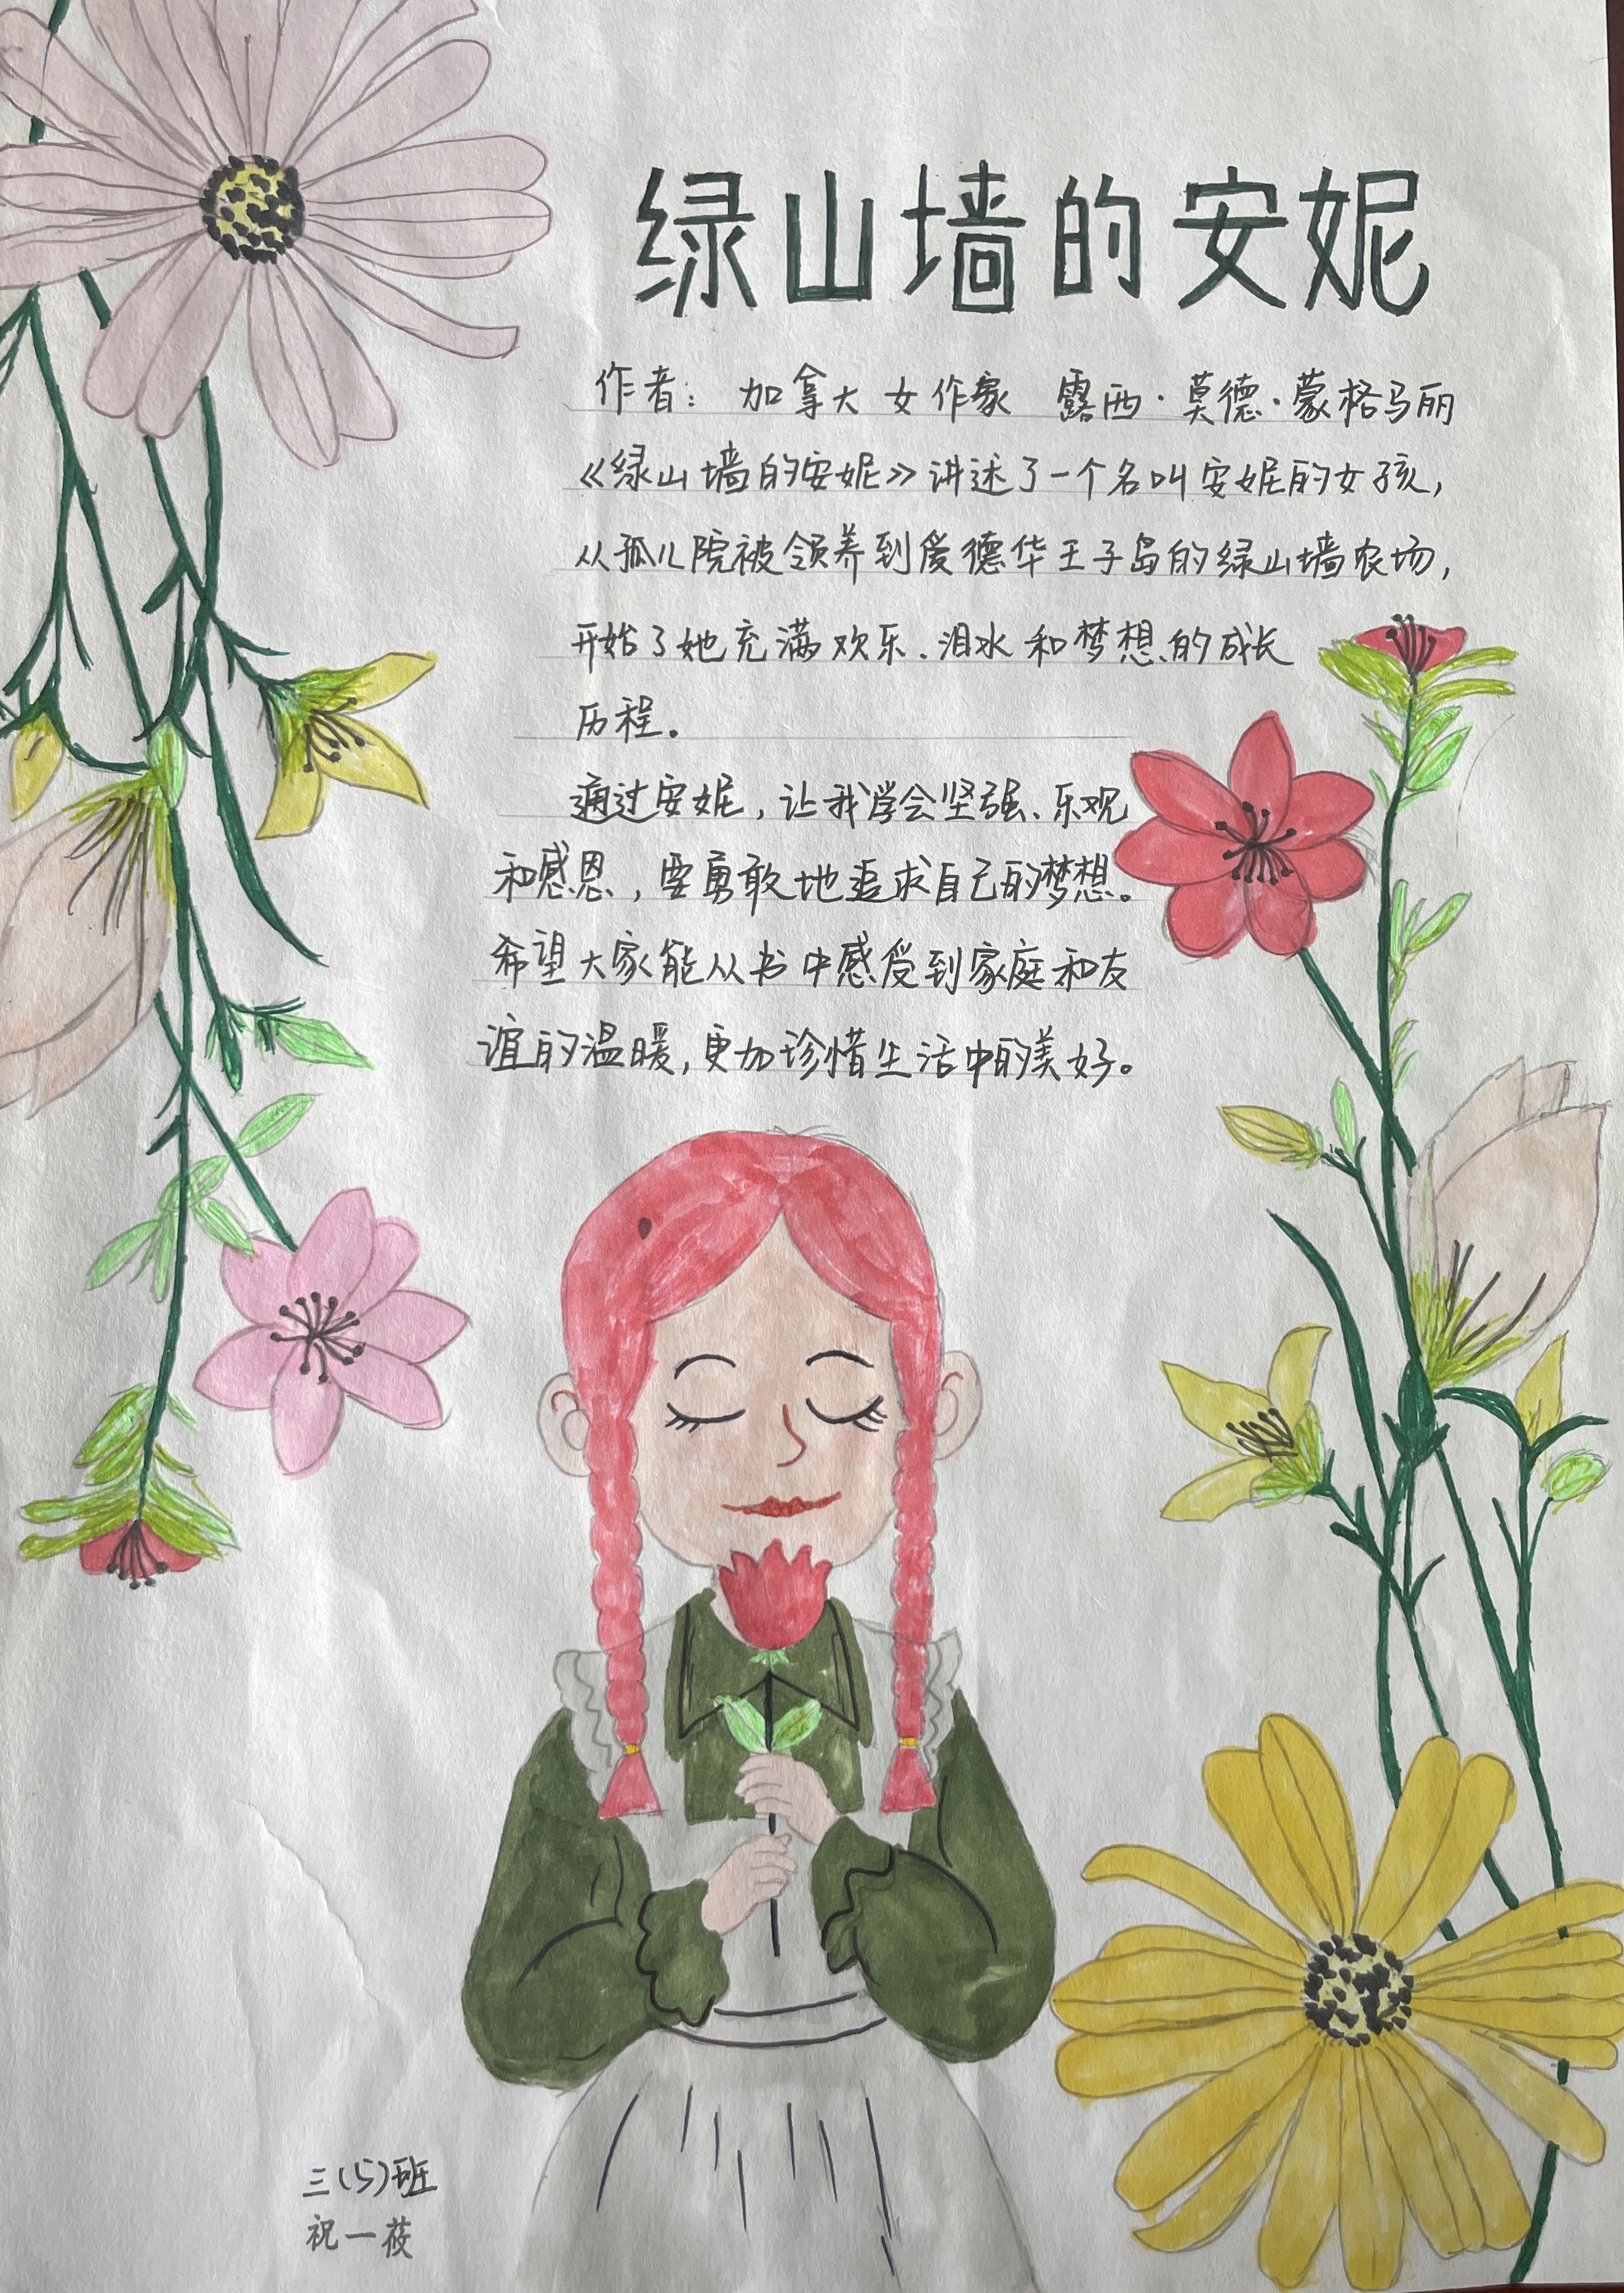 绿山墙的安妮
作者：加拿大女作家 露西·莫德·蒙格马丽
《绿山墙的安妮》讲述了一个名叫安妮的女孩，
从孤儿院被领养到爱德华王子岛的绿山墙农场，
开始了她充满欢乐、泪水和梦想的成长
历程。
通过安妮，让我学会坚强、乐观
和感恩，要勇敢地追求自己的梦想。
希望大家能从书中感受到家庭和友
谊的温暖，更加珍惜生活中的美好。
三(5)班
祝一莜